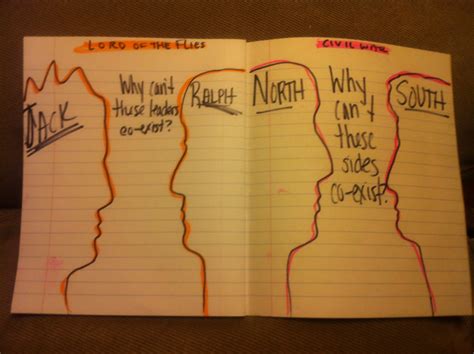 LORD OF THE FLIES
JACK
Why can't
these leaders
co-exist?
RALPH
CIVIL WAR
NORTH
Why
can't
these
sides
co-exist?
SOUTH